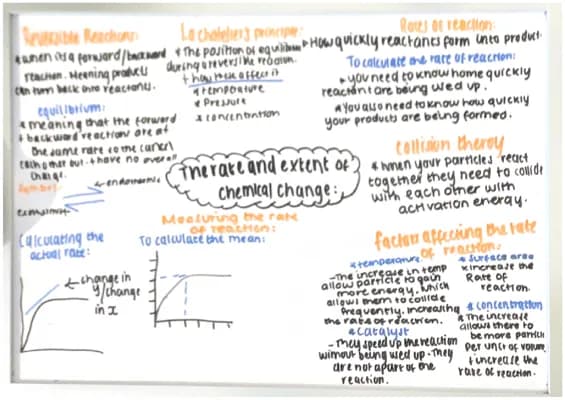 Reversible Reaction:
* when its a forward/backward
reaction. Meening products
can turn back into reactants.
equilibrium:
* meaning that the forward
+ backward reaction are at
the same rate so the cancel
each other out + have no overall
change.
Symbol:
endothermic
exothermic
Le chatelier's principle:
* The position of equilibrium
during a reversible reaction.
+ how these affect it
* temperature
* Pressure
* concentration
Rates of reaction:
How quickly reactants form into product
To calculate the rate of reaction:
you need to know how quickly
reactant are being used up.
* You also need to know how quickly
your products are being formed.
collision theroy
* when your particles react
together they need to collide
with each other with
activation energy.
The rate and extent of
chemical change:
Calculating the
actual rate:
change in
y/change
in x
Measuring the rate
of reaction:
To calculate the mean:
factors affecting the rate
of reaction:
* temperature
- The increase in temp
allow particle to gain
more energy. which
allows them to collide
frequently. increasing
the rate of reaction.
* Catalyst
- They speed up the reaction
without being used up. They
are not apart of the
reaction.
* Surface area
* increase the
Rate of
reaction.
* concentration
* The increase
allows there to
be more particle
per unit of volume
+ increase the
rate of reaction.